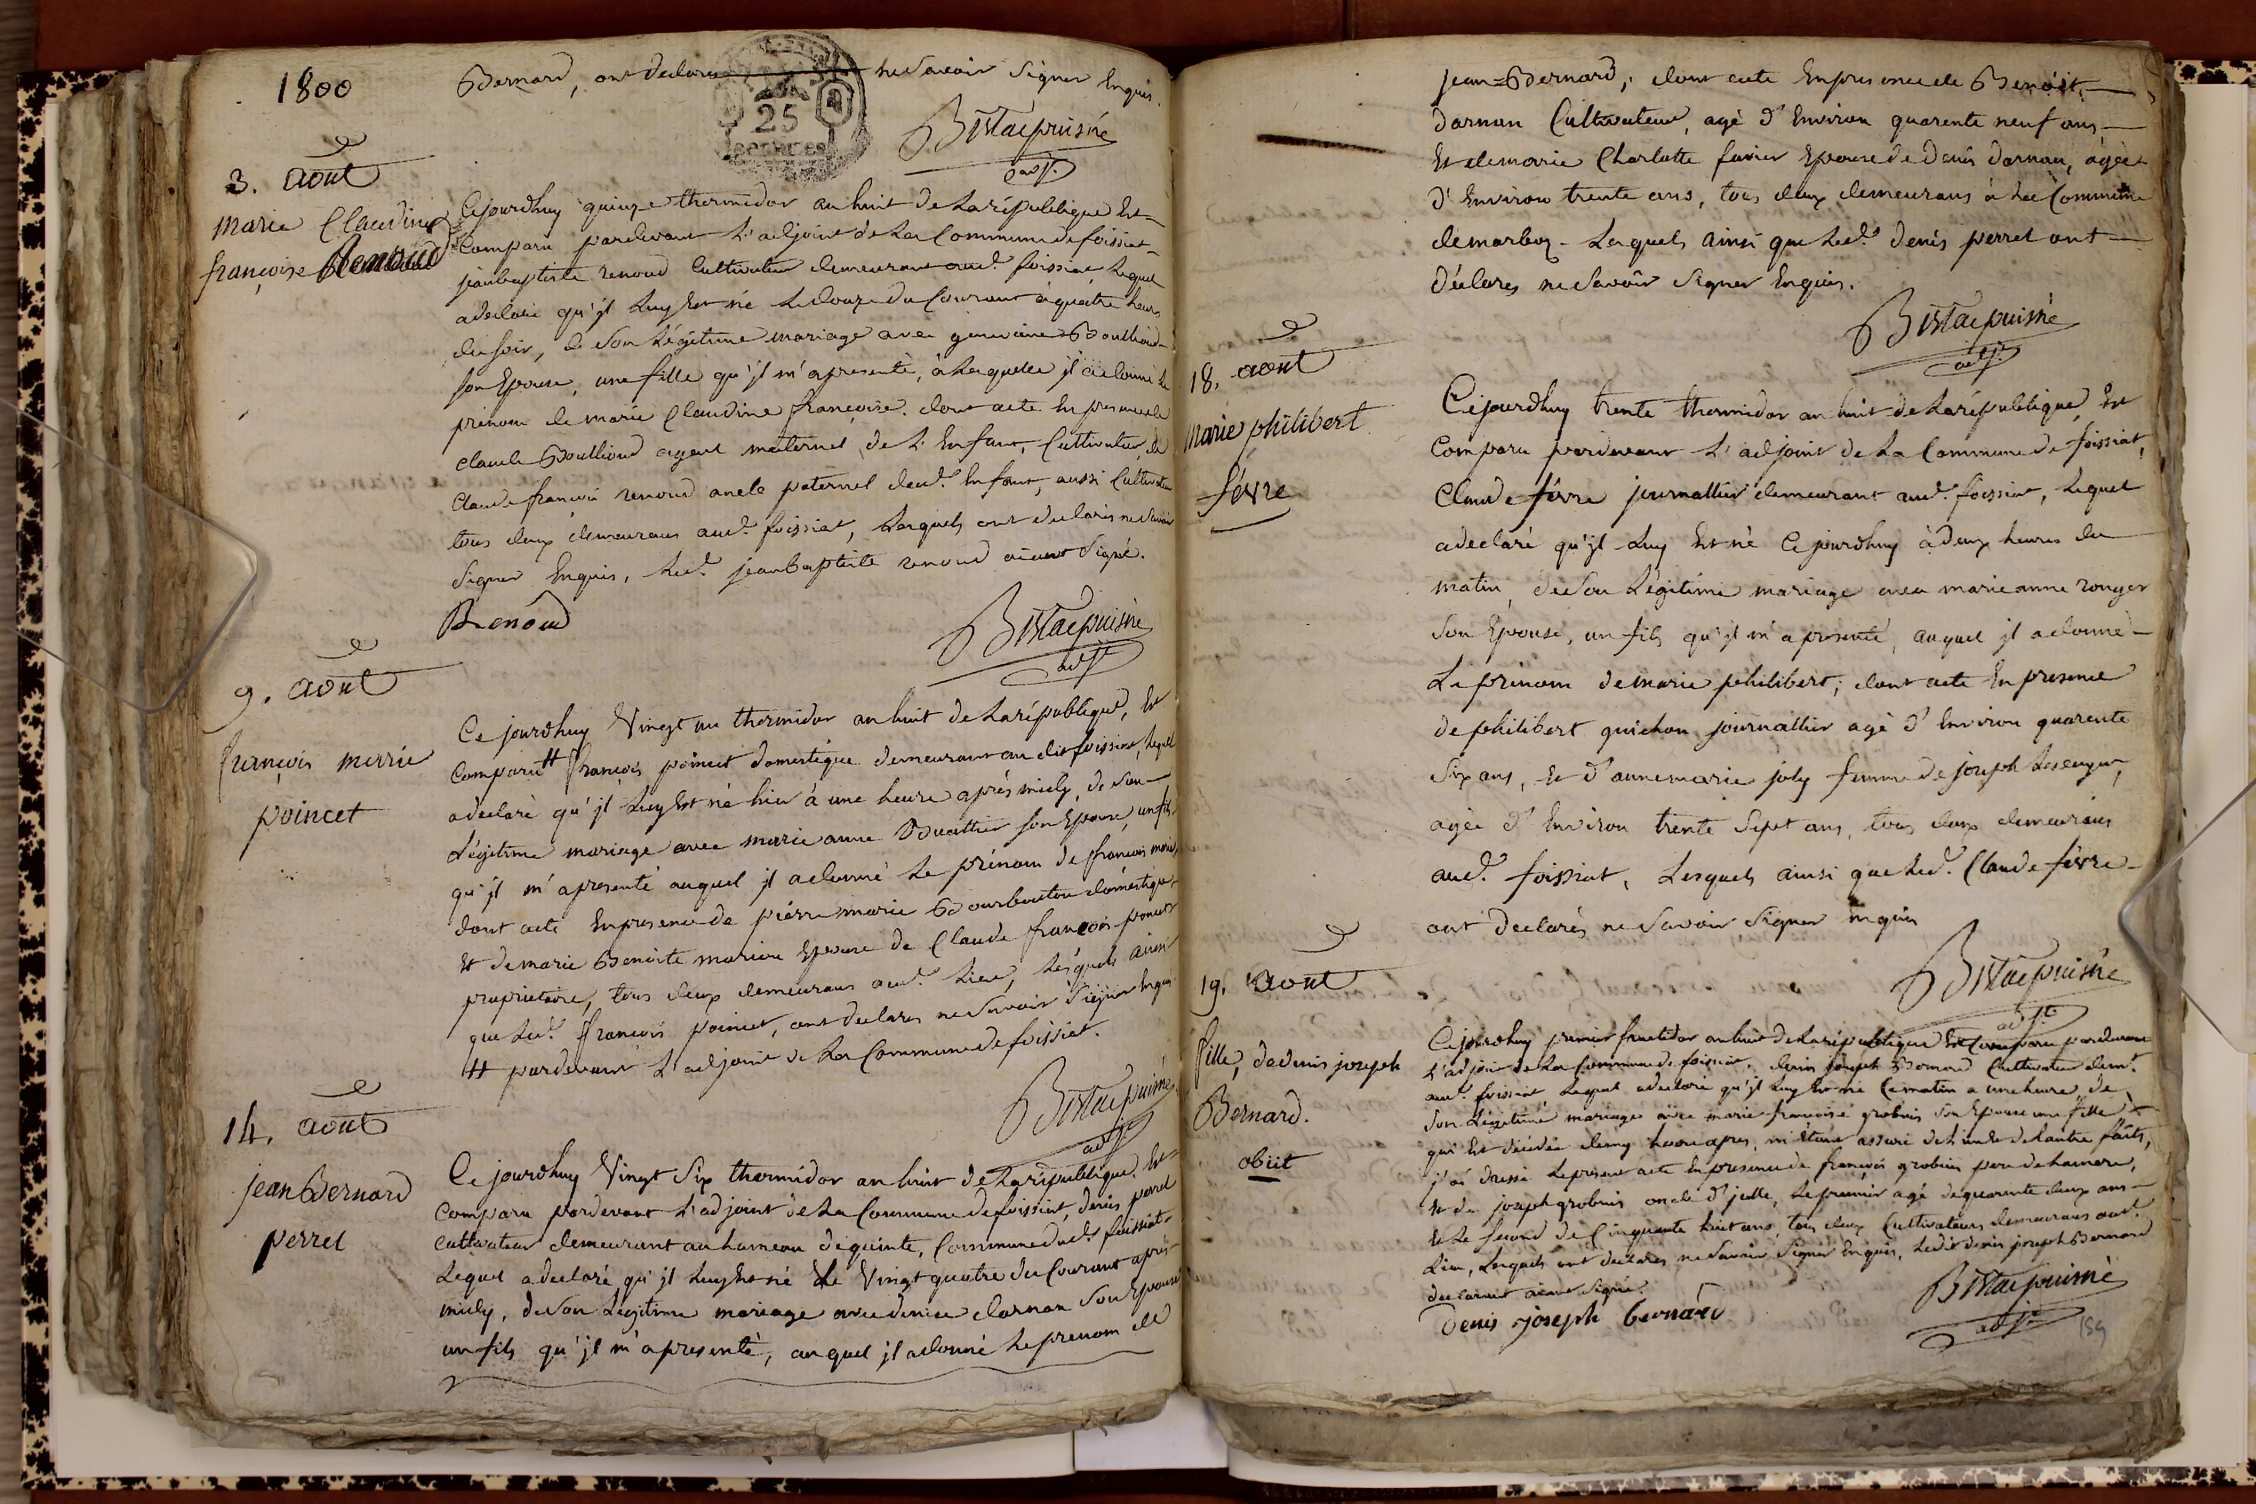 1800
Bernard, ont declares ne Savoir Signer Enquis.
25
centimes
Bistac puisné
adjt.
3. aout
marie Claudine
françoise Renoud
Cejourdhuy quinze thermidor an huit de La république Est
Comparu pardevant L'adjoint de La Commune de foissiat
jean baptiste renoud Cultivateur demeurant aud.t foissiat Lequel
adeclaré qu'jl Luy Est né Le douze du Courant à quatre heures
du soir, de Son Légitime mariage avec genevieve Boullioud
son Epouse, une fille qu'jl m'apresenté, à Laquelle jl adonné Le
prénom de marie Claudine françoise. dont acte En presence de
claude Boullioud ayeul maternel de L'Enfant, Cultivateur, de
Claude françois renoud oncle paternel dud.t Enfant, aussi Cultivateur
tous deux demeurans aud.t foissiat, Lesquels ont declarés ne Savoir
Signer Enquis, Led.t jean baptiste renoud aiant Signé.
Renoud
Bistac puisné
adjt.
9. aout
françois marie
poincet
Ce jourdhuy Vingt un thermidor an huit de La république, Est
Comparu # françois poincet domestique demeurant au dit foissiat, Lequel
adeclaré qu'jl Luy Est né hier à une heure après midy, de Son
Légitime mariage avec marie anne Douattier son Epouse, un fils
qu'jl m'apresenté auquel jl adonné Le prénom de françois marie
dont acte En presence de pierre marie Bourbouton domestique
Et de marie Benoite morion Epouse de Claude françois poncet
proprietaire, tous deux demeurans aud.t Lieu, Lesquels ainsi
que Led.t françois poincet, ont declarés ne Savoir Signer Enquis
# pardevant L'adjoint de La Commune de foissiat.
Bistac puisné
adjt.
14. aout
jean Bernard
perret
Ce jourdhuy Vingt Six thermidor an huit de La république Est
Comparu pardevant L'adjoint de La Commune de foissiat, denis perret
cultivateur demeurant au hameau de quinte, Commune dud.t foissiat
Lequel adeclaré qu'jl Luy Est né Le Vingt quatre du Courant après
midy, de Son Légitime mariage avec denise darnan Son Epouse
un fils qu'jl m'apresenté, auquel jl adonné Le prenom de
jean=Bernard; dont acte En presence de Benoit
darnan Cultivateur, agé d'Environ quarente neuf ans
Et de marie Charlotte favier Epouse de denis darnan, agée
d'Environ trente ans, tous deux demeurans à La Commune
de marboz. Lesquels ainsi que Led.t denis perret ont
déclarés ne Savoir Signer Enquis.
Bistac puisné
adjt.
18. aout
marie philibert
févre
Cejourdhuy trente thermidor an huit de La république Est
Comparu pardevant L'adjoint de La Commune de foissiat,
Claude févre journallier demeurant aud.t foissiat, Lequel
adeclaré qu'jl Luy Est né Ce jourdhuy à deux heures du
matin, de Son Légitime mariage avec marie anne rouger
Son Epouse, un fils qu'jl m'apresenté, auquel jl adonné
Le prénom de marie philibert; dont acte En presence
de philibert guichon journallier agé d'Environ quarente
Six ans, Et d'anne marie joly femme de joseph
agée d'Environ trente Sept ans, tous deux demeurans
aud.t foissiat, Lesquels ainsi que Led.t Claude févre
ont declarés ne Savoir Signer enquis
Bistac puisné
adjt.
19. aout
fille, de denis joseph
Bernard.
obiit
Cejourdhuy premier fructidor an huit de La république Est Comparu pardevant
L'adjoint de La Commune de foissiat, denis joseph Bernard Cultivateur dem.t
aud.t foissiat, Lequel adeclaré qu'jl Luy Est né Ce matin a une heure, de
Son Légitime mariage avec marie françoise grobuis Son Epouse une fille
qui Est décédée demy heure apres, m'étant assuré de L'un et de L'autre faits,
j'ai dressé Le present acte En presence de françois grobuis pere de La mere,
Et de joseph grobuis oncle d'jcelle, Le premier agé de quarente deux ans
Et Le second de Cinquante huit ans, tous deux Cultivateurs demeurans aud.t
Lieu, Lesquels ont declarés ne Savoir Signer Enquis, Ledit denis joseph Bernard
declarant aiant Signé.
Denis joseph bernard
Bistac puisné
adjt.
159